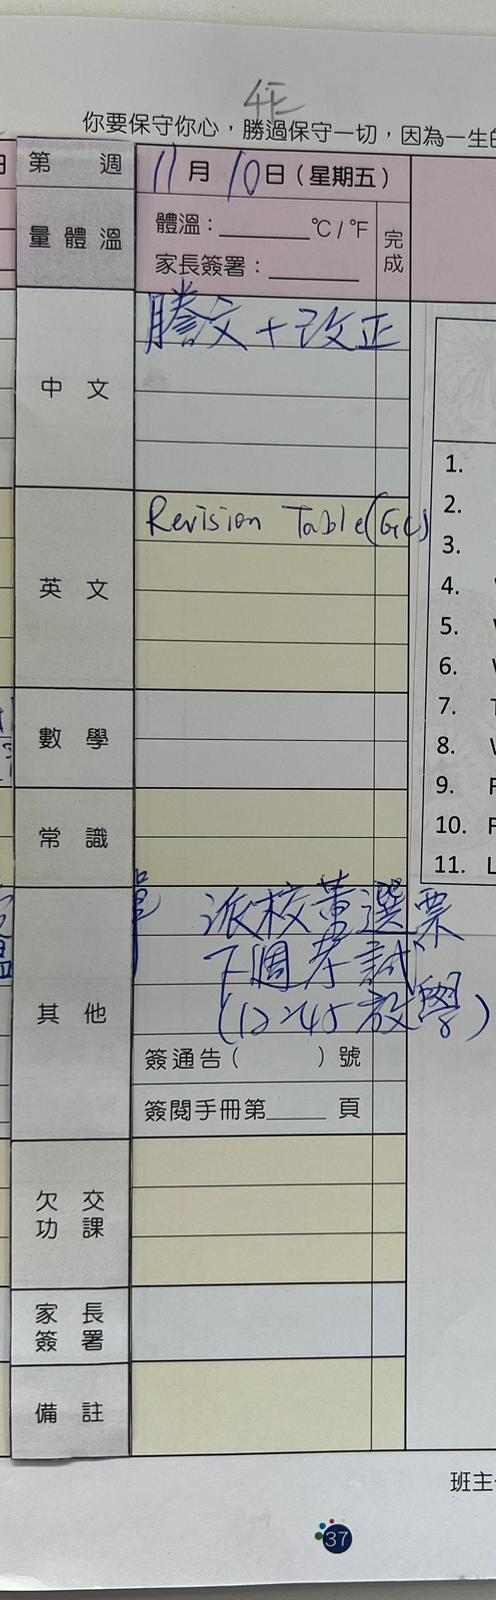 4E
你要保守你心，勝過保守一切，因為一生的
第 週 11月10日（星期五）
量體溫 體溫：______°C / °F 完成
家長簽署：______
中文 謄文+改正
英文 Revision Table (GC)
數學
常識
其他 派校董選票
下週考試
(12:45放學)
簽通告（ ）號
簽閱手冊第____頁
欠交功課
家長簽署
備註
1.
2.
3.
4.
5.
6.
7.
8.
9.
10.
11. L
班主
37